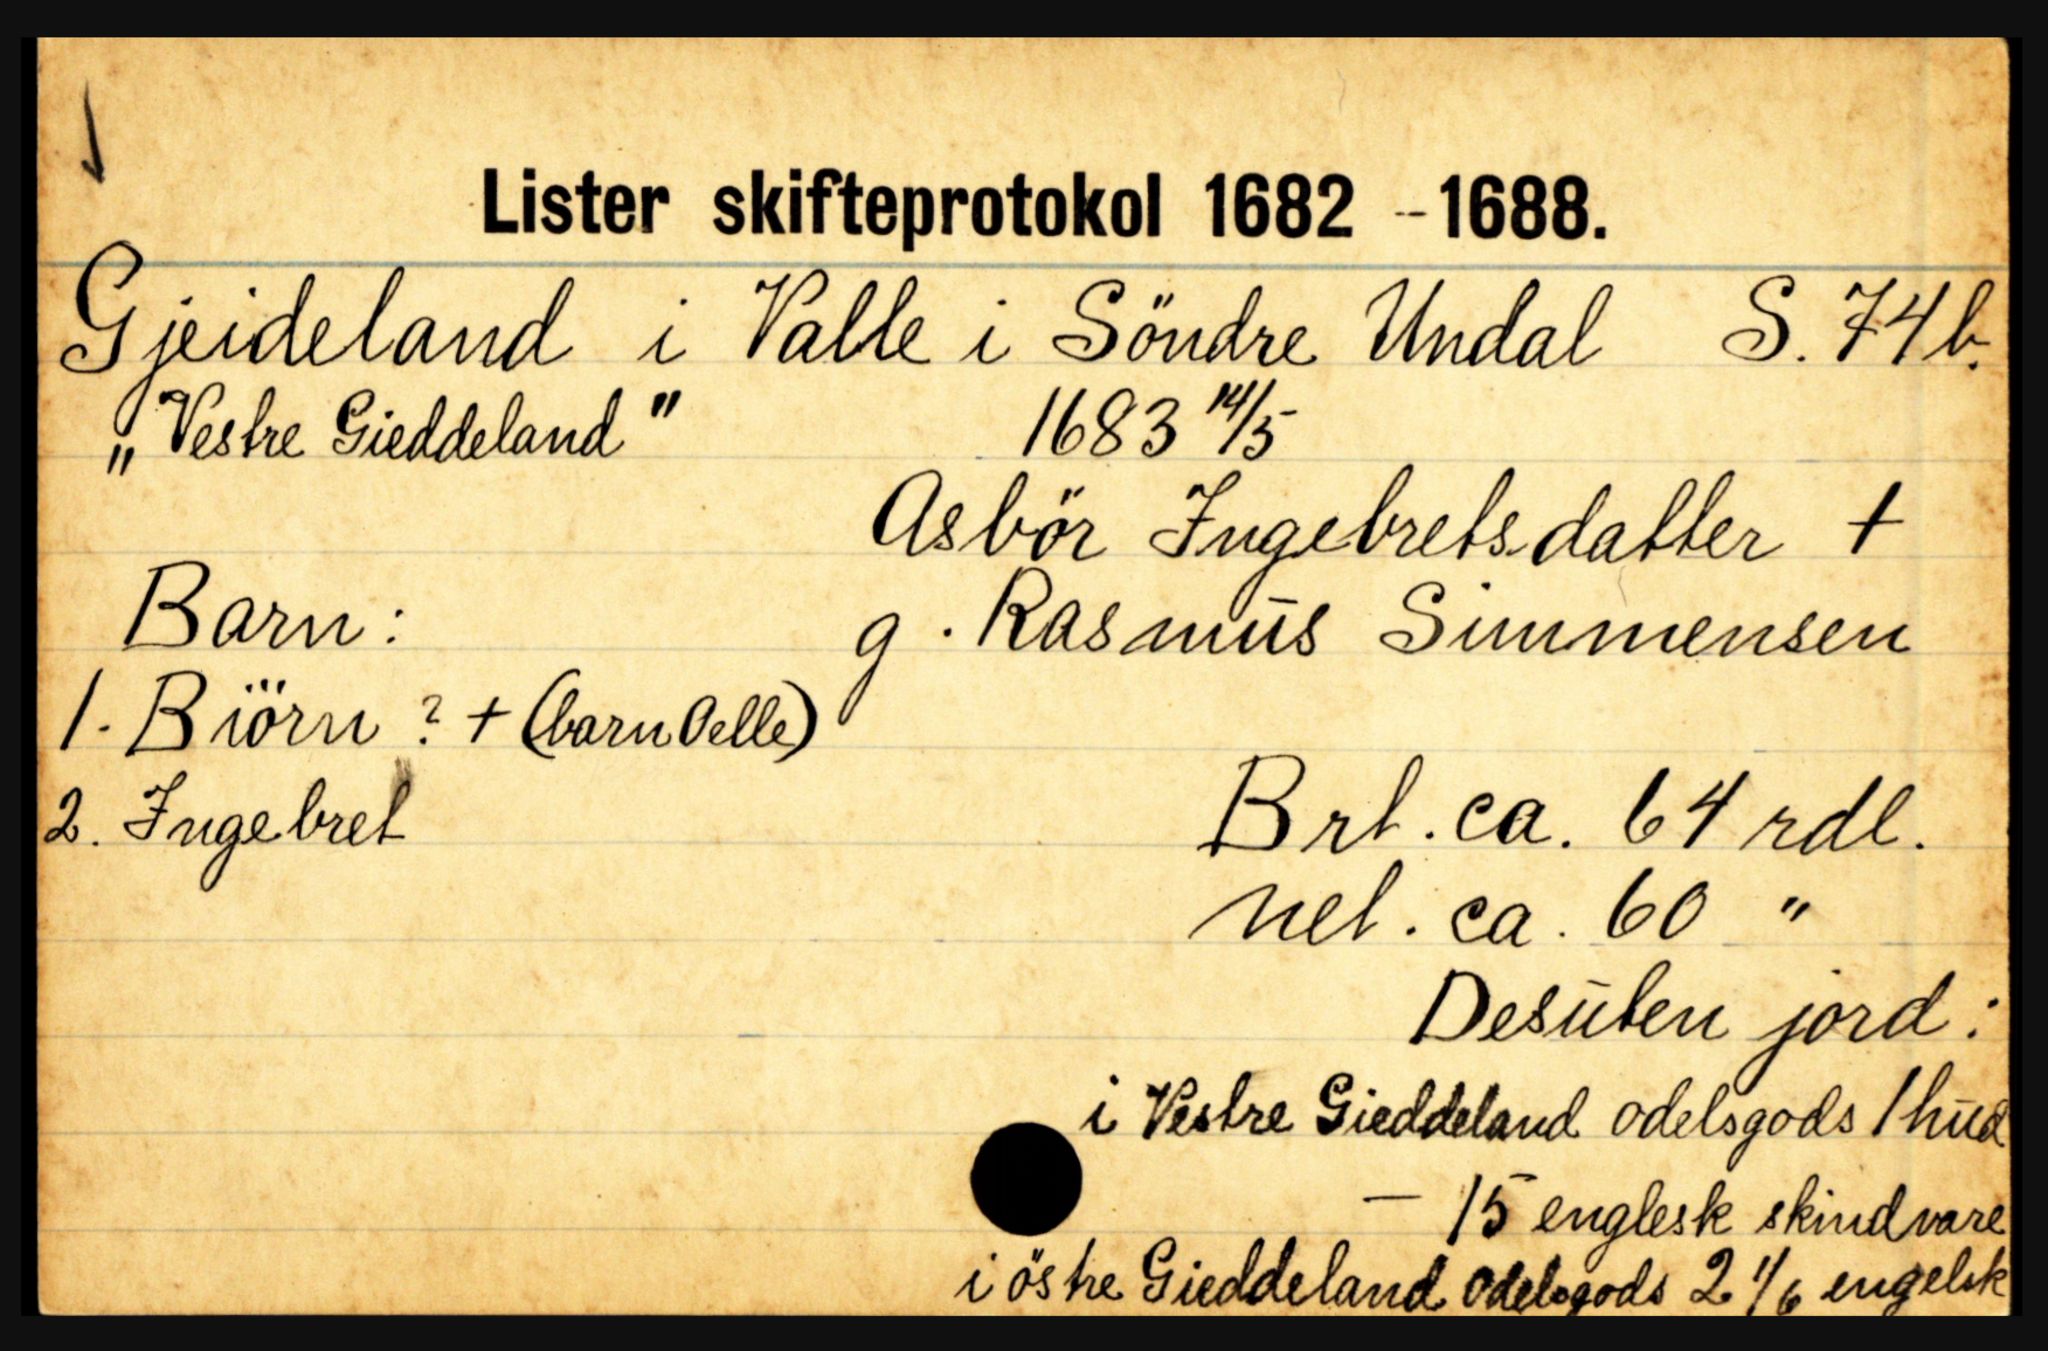 Lister skifteprotokol 1682 - 1688.
Gjeideland i Valle i Söndre Undal S. 74 b.
„Vestre Gieddeland" 1683 14/5
Asbör Ingebretsdatter +
Barn: g. Rasmus Simmensen
1. Biörn ? + (barn Oelle)
2. Ingebret
Brt. ca. 64 rdl.
net. ca. 60 "
Desuten jord:
i Vestre Gieddeland odelsgods 1 hud
— 15 englesk skindvare
i östre Gieddeland odelsgods 2 1/6 engelsk